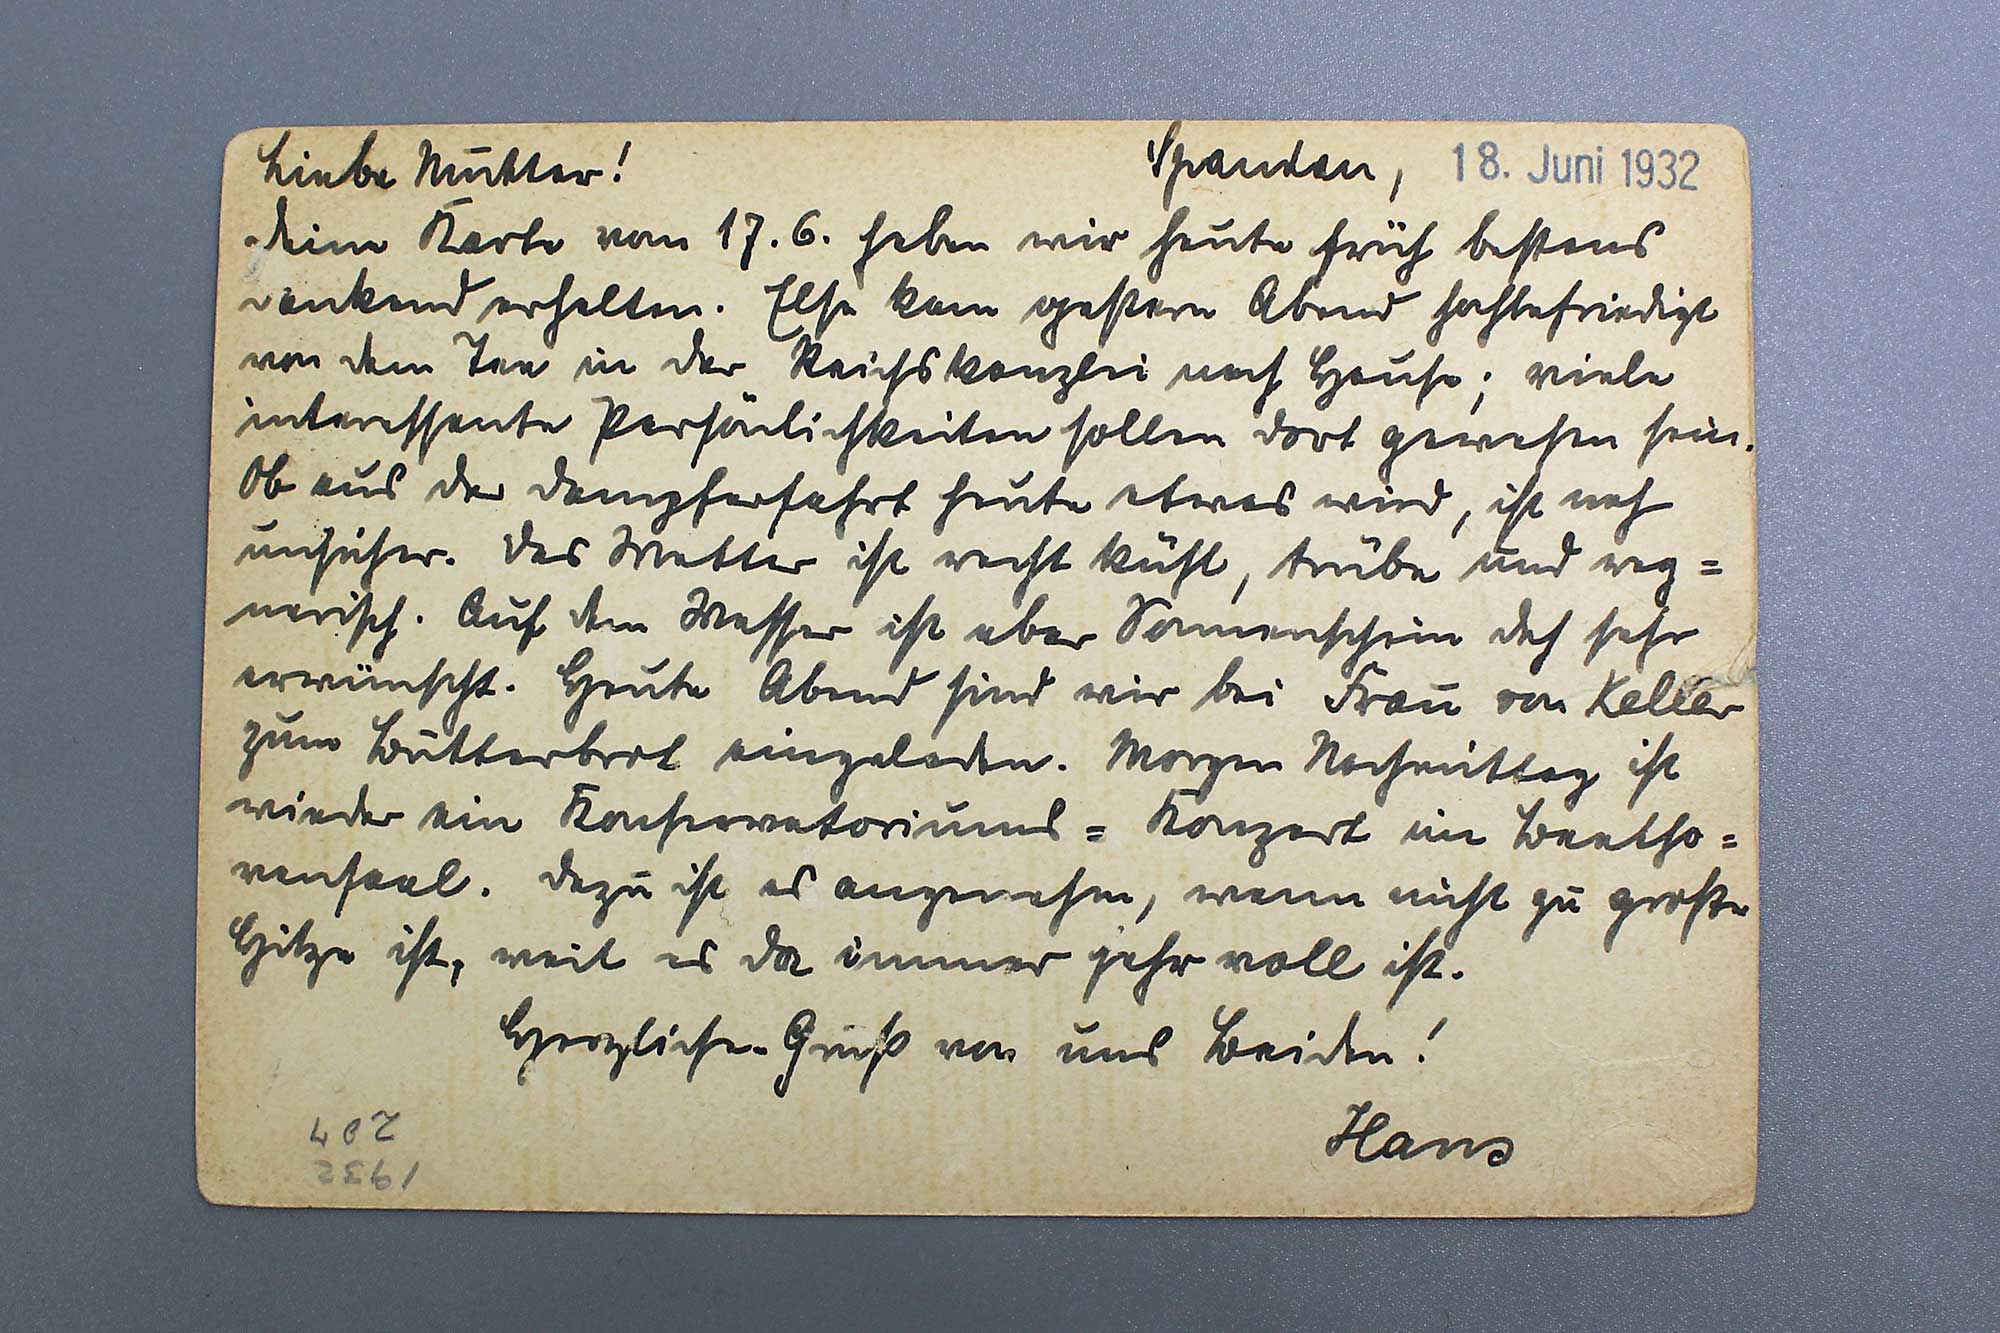 Liebe Mutter! Spandau, 18. Juni 1932
Deine Karte vom 17. 6. haben wir heute früh bestens
dankend erhalten. Else kam gestern Abend hochbefriedigt
von dem Tee in der Reichskanzlei nach Hause; viele
interessante Persönlichkeiten sollen dort gewesen sein.
Ob aus der Dampferfahrt heute etwas wird, ist noch
unsicher. Das Wetter ist recht kühl, trübe und reg=
nerisch. Auf dem Wasser ist aber Sonnenschein doch sehr
erwünscht. Heute Abend sind wir bei Frau von Keller
zum Butterbrot eingeladen. Morgen Nachmittag ist
wieder ein Konservatoriums= Konzert im Beetho=
vensaal. Dazu ist es angenehm, wenn nicht zu große
Hitze ist, weil es da immer sehr voll ist.
Herzliche Grüße von uns Beiden!
Hans
407
1932